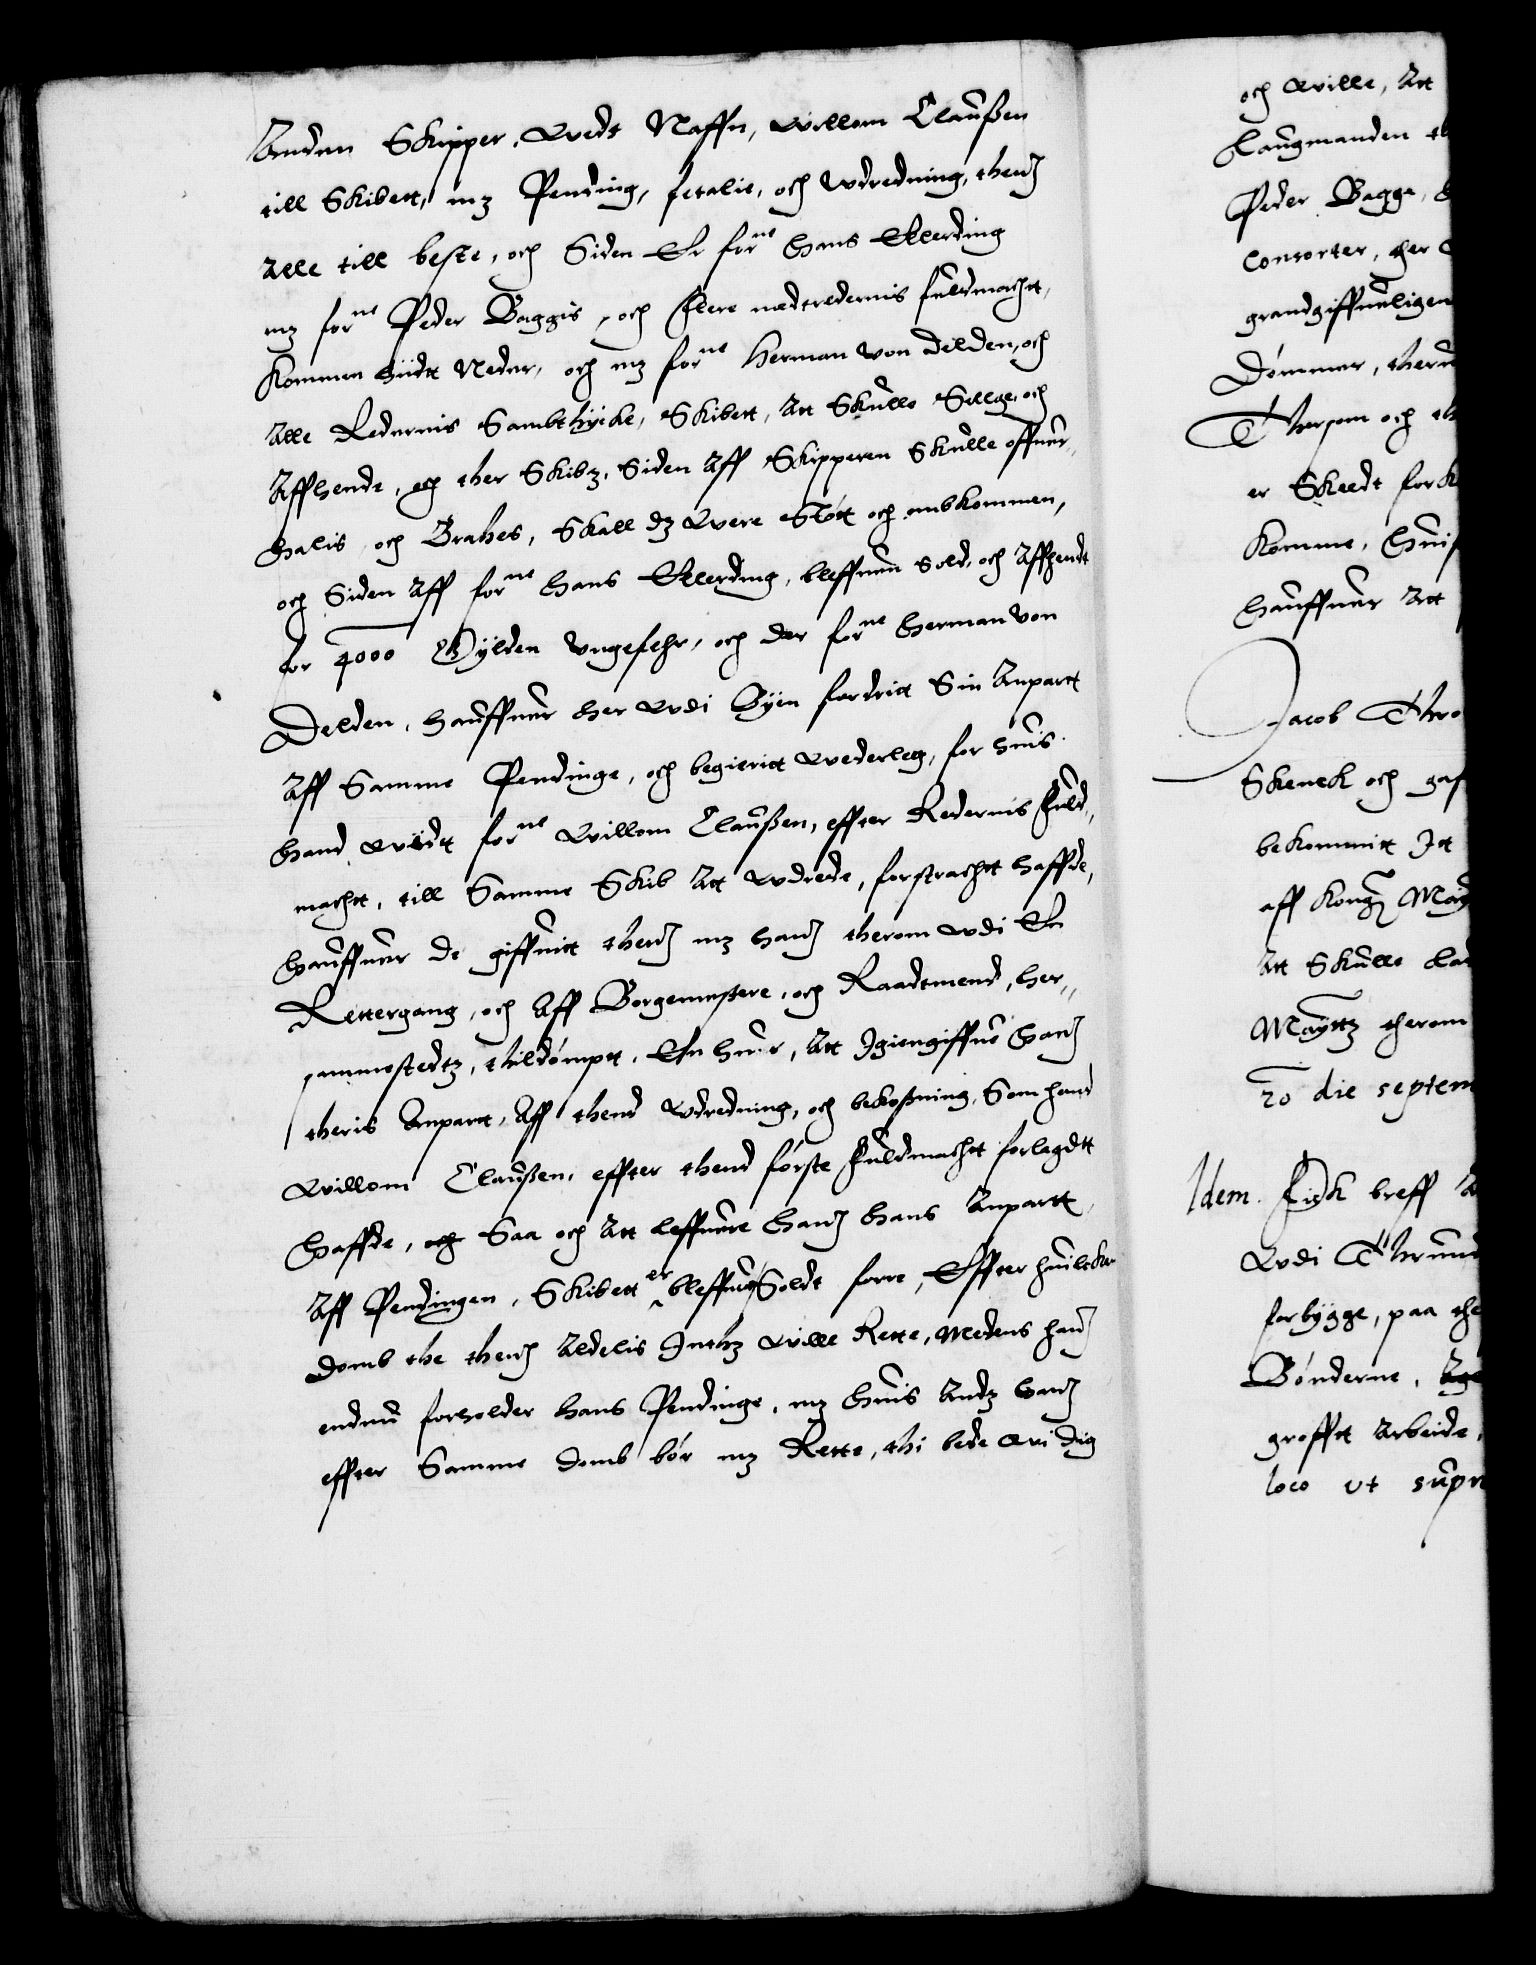 Anden Skipper, wedt Naffn, willom Claußen
till Skibett, mz Pending, fetalie, och wdredning, thend
alle till beste, och Siden Er forne Hans Ellerding
mz forne Peder Baggis, och Flere medtredernis fuldmachtt,
kommen hiidt Neder, och mz forne Herman von Delden, och
alle Redernis Sambthycke, Skibett, att Skulle Sellge, och
Affhende, och ther Skibz, Siden Aff Skipperen Skulle offuer,,
halis och Brakes, Skall dz were Stött och ombkommen,
och Siden aff forne Hans Ellerding, bleffuen Sold, och affhendt
for 4000 Gylden Ungefehr, och der forne Herman von
Delden, Hauffuer her wdi Byen fordrit Sin Anpartt
aff Samme Pendinge, och begierit wederleg, for Huis
Hand widt forne Willom Claußen, effter Redernis Fuld,,
machtt, till Samme Skib att wdrede, forstrachtt Haffde,
Hauffuer de giffuitt thend mz Hand therom wdi En
Rettergang, och aff Borgemestere, och Raadtmend, her,,
sammestedtz, thildömptt, En huer, att Igiengiffue Hand
theris Anpart, Aff thend wdredning, och bekostning, Som hand
Willom Claußen, effter thend förste Fuldmachtt forlagdtt
Haffde, och Saa och att leffuere Hand Hans Anpartt,
Aff Pendingen, Skibett er bleffuen Soldt forre, Effter huilcken
domb the thend aldelis Inthz wille Rette, Medens hand
endnu forholder Hans Pendinge, mz Huis Andz Hand
effter Samme domb bör mz Rette, thi bede wi Dig
och wille, Att
Laugmanden th
Peder Bagge,
Consorter, her
grandgiffueligen
Dömmer, ther
Thersom och th
er Skeedt for
komme, Huis
Hauffuer Att
Jacob Thro
Skenck och gaf
bekommitt Jt
aff Kong: May
Att Skulle lad
Mayttz therom
20 die septem
Idem. Fick breff
wdi Thrund
forbygge, paa the
Bönderne,
grofft Arbeide,
loco ut supr